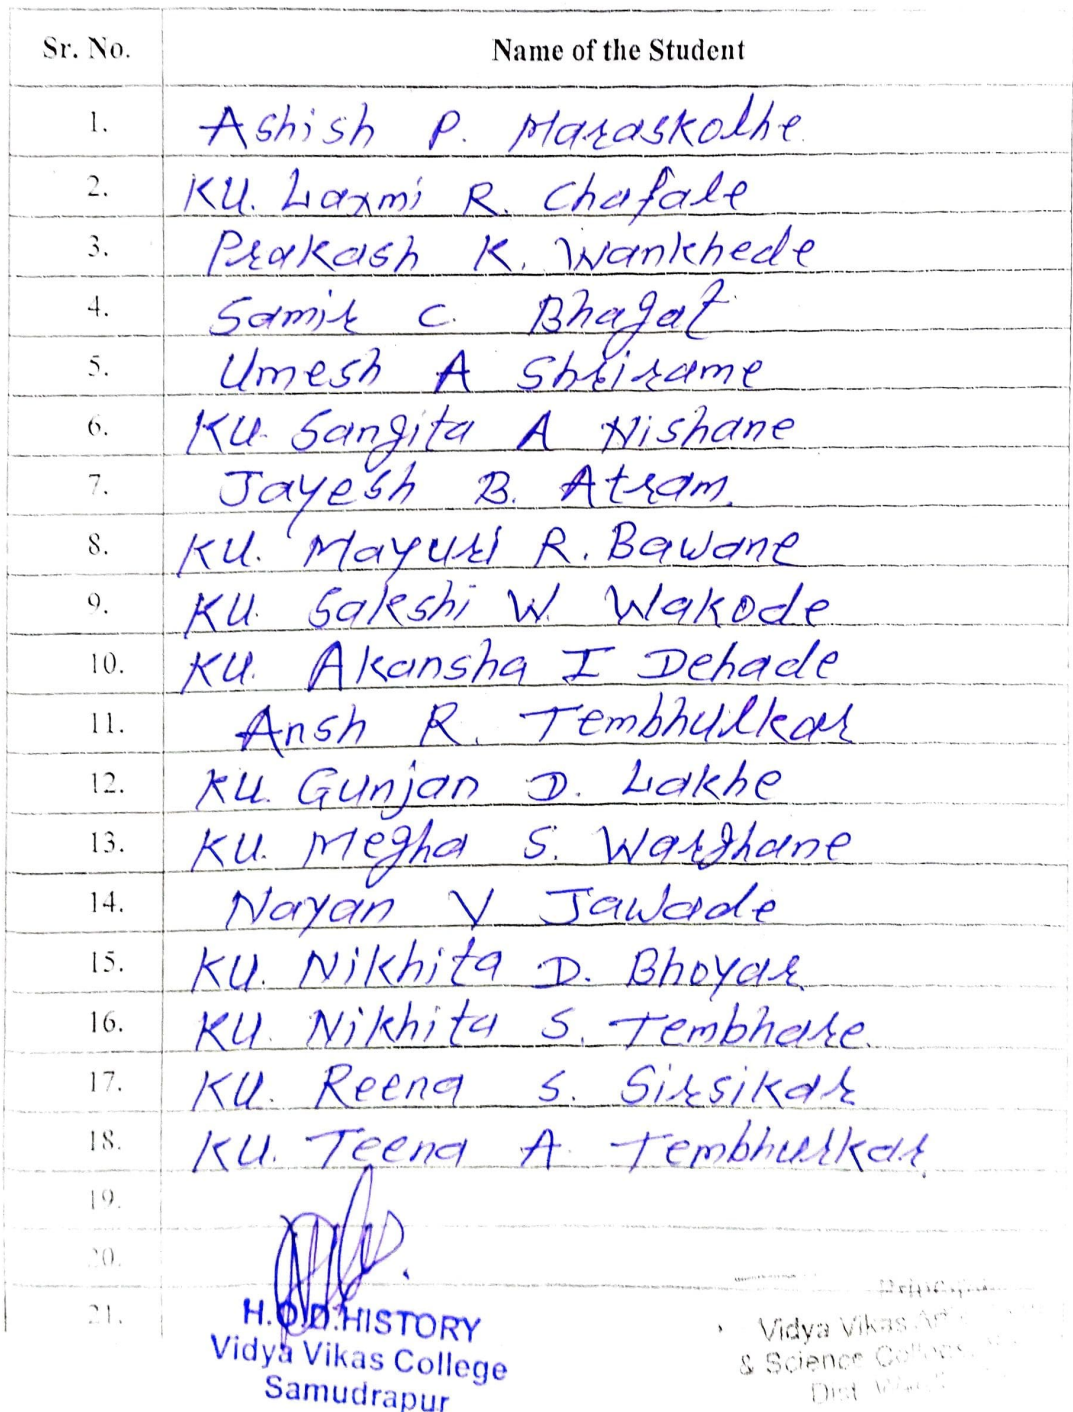 Sr. No. Name of the Student
1. Ashish P. Maraskolhe
2. KU. Laxmi R. Chafale
3. Prakash K. Wankhede
4. Samir C. Bhagat
5. Umesh A Shrirame
6. KU. Sangita A Nishane
7. Jayesh B. Atram.
8. KU. Mayuri R. Bawane
9. KU. Sakshi W. Wakode
10. KU. Akansha I Dehade
11. Ansh R. Tembhulkar
12. KU. Gunjan D. Lakhe
13. KU. Megha S. Warghane
14. Nayan V Jawade
15. KU. Nikhita D. Bhoyar
16. KU. Nikhita S. Tembhare.
17. KU. Reena S. Sirsikar
18. KU. Teena A. Tembhurkar.
19.
20.
21.
H.O.D. HISTORY
Vidya Vikas College
Samudrapur
Principal
Vidya Vikas
& Science
Dist